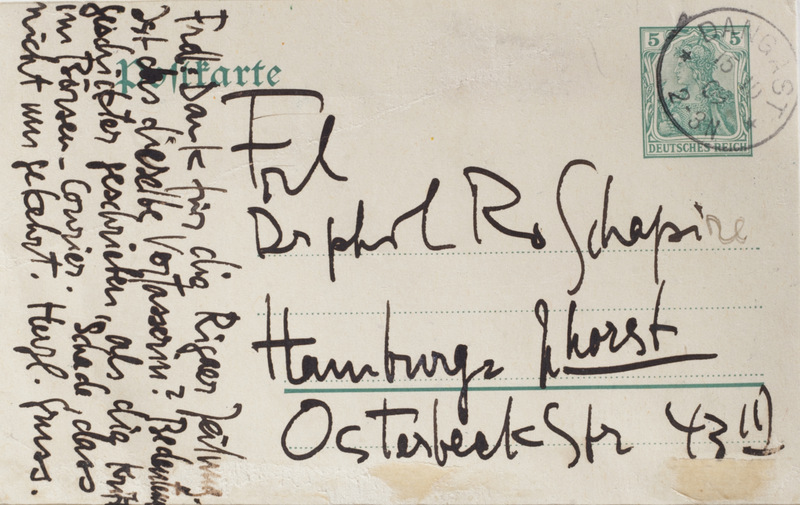 Postkarte
5 5
DEUTSCHES REICH
DANGAST
2-3N
Frl
Dr phil Ro Schapire
Hamburg
Osterbeckstr 43 II
Frdl. Dank für die Rigaer Zeitung.
Ist das dieselbe Verfasserin? Bedeutend
geschickter geschrieben, als die Kritik
im Börsen-Courier. Schade, dass
nicht umgekehrt. Herzl. Gruss.